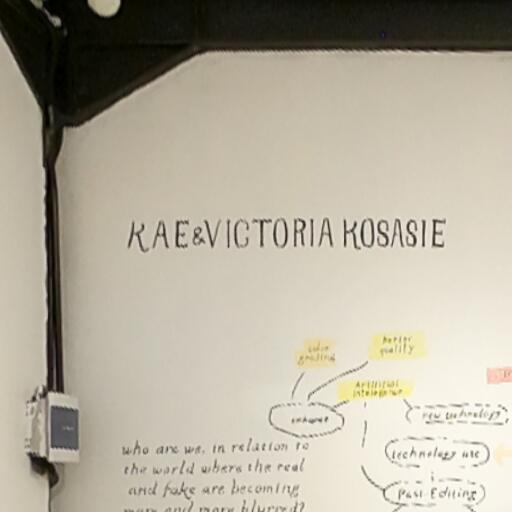 KAE&VICTORIA KOSASIE
color
grading
better
quality
Artificial
intelligence
enhance
new technology
technology use
Past Editing
who are we, in relation to
the world where the real
and fake are becoming
more and more blurred?